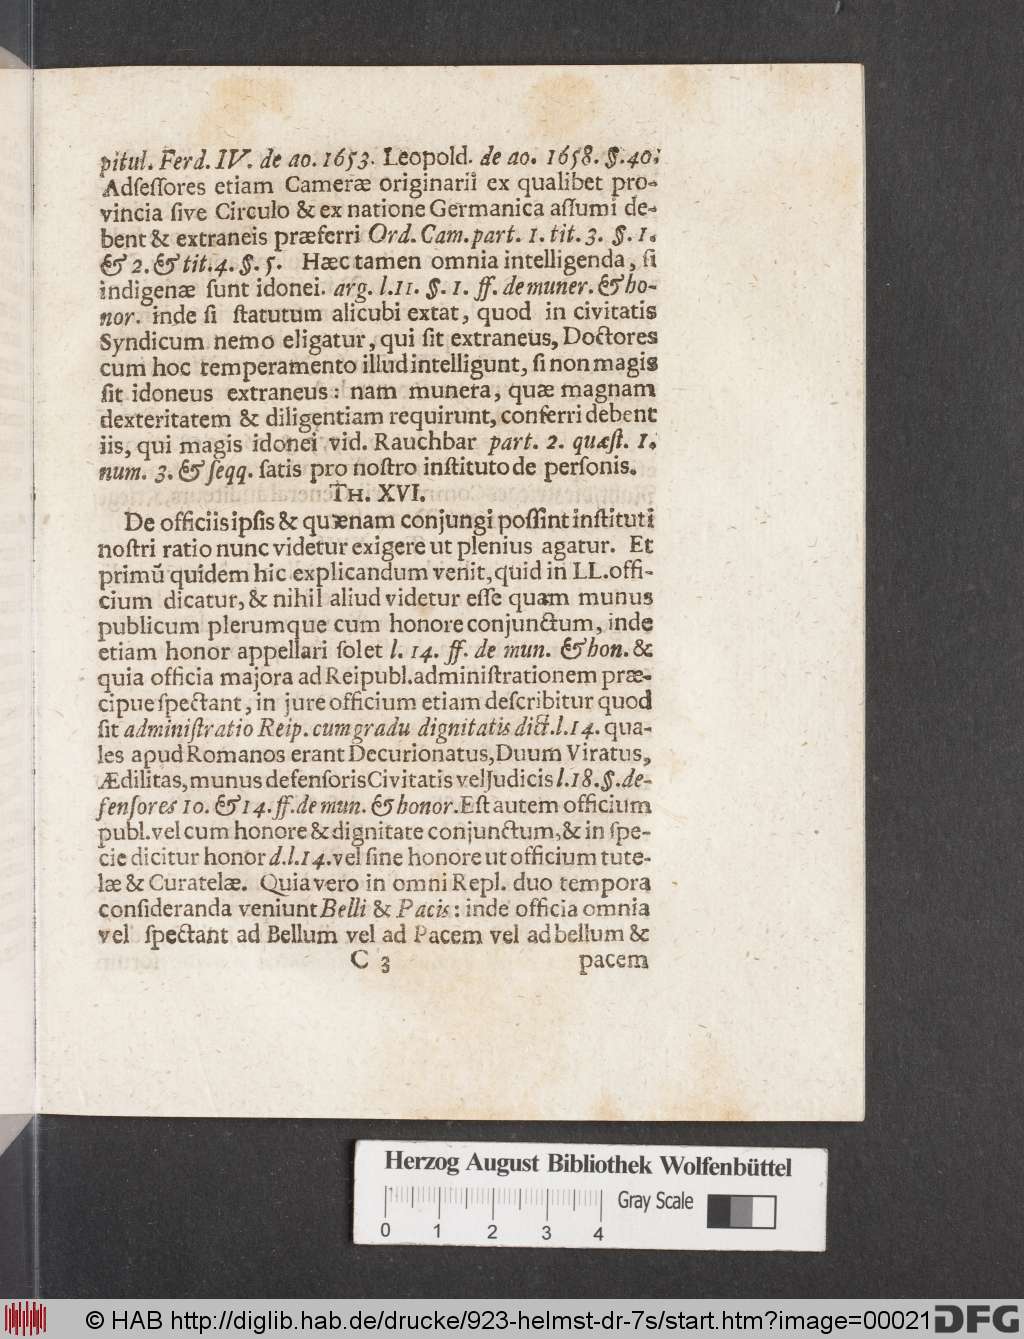 pitul. Ferd. IV. de ao. 1653. Leopold. de ao. 1658. §. 40.
Adſeſſores etiam Cameræ originarii ex qualibet pro-
vincia ſive Circulo & ex natione Germanica aſſumi de-
bent & extraneis præferri Ord. Cam. part. 1. tit. 3. §. 1.
& 2. & tit. 4. §. 5. Hæc tamen omnia intelligenda, ſi
indigenæ ſunt idonei. arg. l. 11. §. 1. ff. de muner. & ho-
nor. inde ſi ſtatutum alicubi extat, quod in civitatis
Syndicum nemo eligatur, qui ſit extraneus, Doctores
cum hoc temperamento illud intelligunt, ſi non magis
ſit idoneus extraneus: nam munera, quæ magnam
dexteritatem & diligentiam requirunt, conferri debent
iis, qui magis idonei vid. Rauchbar part. 2. quæſt. 1.
num. 3. & ſeqq. ſatis pro noſtro inſtituto de perſonis.
TH. XVI.
De officiis ipſis & quænam conjungi poſſint inſtituti
noſtri ratio nunc videtur exigere ut plenius agatur. Et
primũ quidem hic explicandum venit, quid in LL. offi-
cium dicatur, & nihil aliud videtur eſſe quam munus
publicum plerumque cum honore conjunctum, inde
etiam honor appellari ſolet l. 14. ff. de mun. & hon. &
quia officia majora ad Reipubl. adminiſtrationem præ-
cipue ſpectant, in jure officium etiam deſcribitur quod
ſit adminiſtratio Reip. cum gradu dignitatis dict. l. 14. qua-
les apud Romanos erant Decurionatus, Duum Viratus,
Ædilitas, munus defenſoris Civitatis vel Judicis l. 18. §. de-
fenſores 10. & 14. ff. de mun. & honor. Eſt autem officium
publ. vel cum honore & dignitate conjunctum, & in ſpe-
cie dicitur honor d. l. 14. vel ſine honore ut officium tute-
læ & Curatelæ. Quia vero in omni Repl. duo tempora
conſideranda veniunt Belli & Pacis: inde officia omnia
vel ſpectant ad Bellum vel ad Pacem vel ad bellum &
C 3 pacem
Herzog August Bibliothek Wolfenbüttel
Gray Scale
0 1 2 3 4
© HAB http://diglib.hab.de/drucke/923-helmst-dr-7s/start.htm?image=00021
DFG